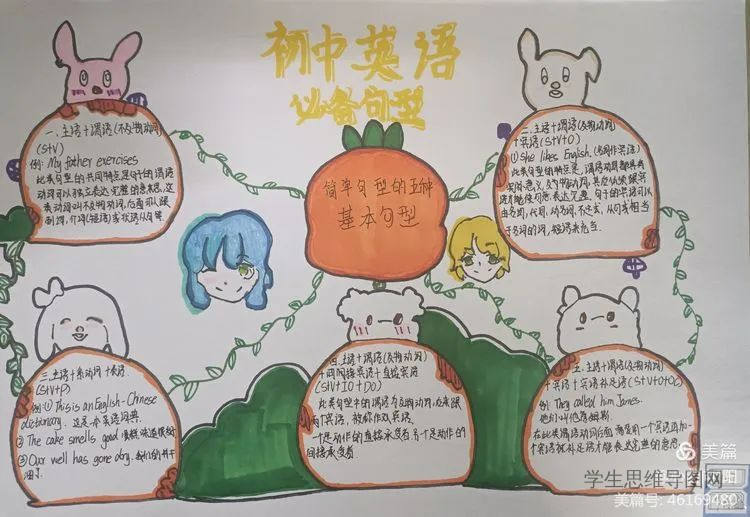 初中英语
必备句型
简单句型的五种
基本句型
一.主语+谓语(不及物动词)
(S+V)
例: My father exercises
此类句型的共同特点是句子的谓语
动词可以独立表达完整的意思,这
类动词叫不及物动词,后面可以跟
副词,介词(短语)或状语从句等
二.主语+谓语(及物动词)
+宾语(S+V+O)
① She likes English.
此类句型的特点是,谓语动词都具有
实际意义,
才能使句意表达完整,句子的宾语可以
由名词,代词,动名词,不定式,从句或相当
于名词的词,短语来充当.
三.主语+系动词+表语
(S+V+P)
例:① This is an English-Chinese
dictionary. 这是一本英语词典
② The cake smells good
③ Our well has gone dry.
四.主语+谓语(及物动词)
+间接宾语+直接宾语
(S+V+IO+DO)
此类句型中的谓语
两个宾语,故称作双宾语.
一个是动作的直接承受者,另一个是动作的
间接承受者
五.主语+谓语(及物动词)
+宾语+宾语补足语(S+V+O+OC)
例: They called him James.
他们叫他詹姆斯.
在此类谓语动词后面需要用一个宾语再加一
个宾语补足语才能表达完整的意思
美篇
学生思维导图网
美篇号: 46169480